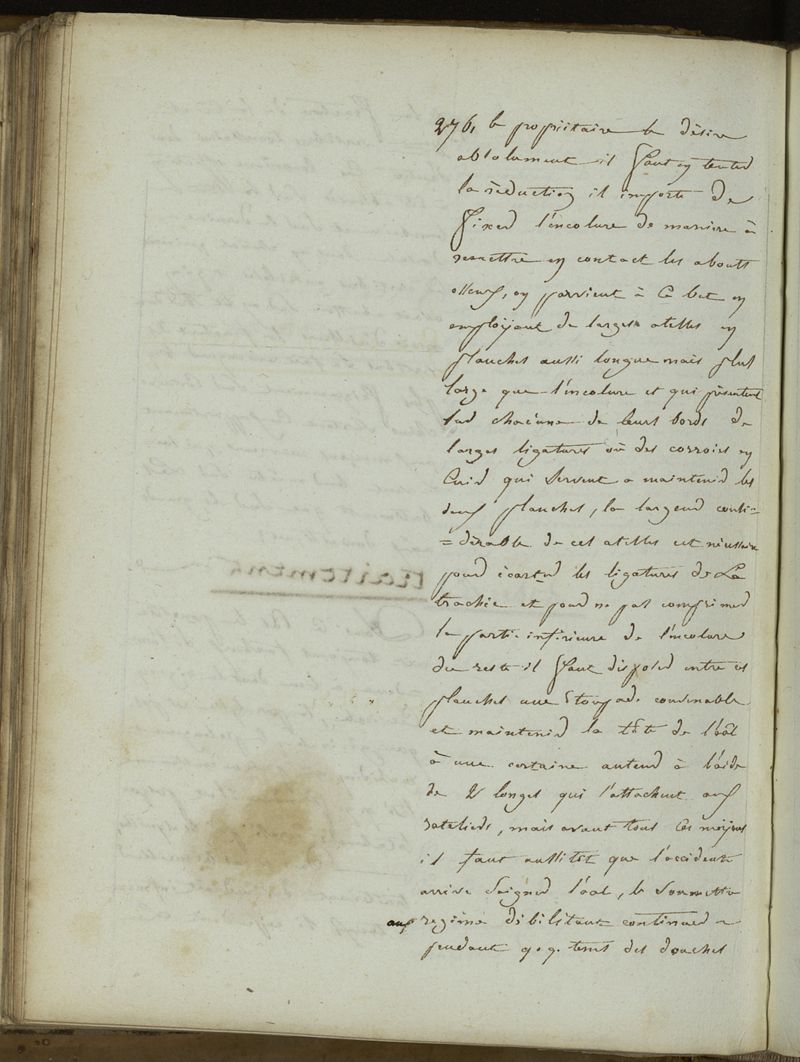 276, le propriétaire le désire
absolument il faut en tenter
la réduction il importe de
fixer l'encolure de maniere à
remettre en contact les abouts
osseux, on parvient à ce but en
emploijant de larges atelles en
planches aussi longue mais plus
large que l'encolure et qui présentent
sur chacune de leurs bords de
larges ligatures ou des corroies en
cuir qui servent a maintenir les
deux planches, la largeur consi=
=dérable de cet atelles est nécessaire
pour écarter les ligatures de La
trachée et pour ne pas comprimer
la partie inférieure de l'encolure
du reste il faut disposer entre ces
planches une étoupade convenable
et maintenir la tête de l'aāl
à une certaine auteur à l'aide
de 2 longes qui l'attachent aux
rateliers, mais avant tous ces moijens
il faut aussitôt que l'accidente
arrive saigner l'aal, le soumettre
aux regime débilitant continuer
pendant q.q. tems des douches
traitement